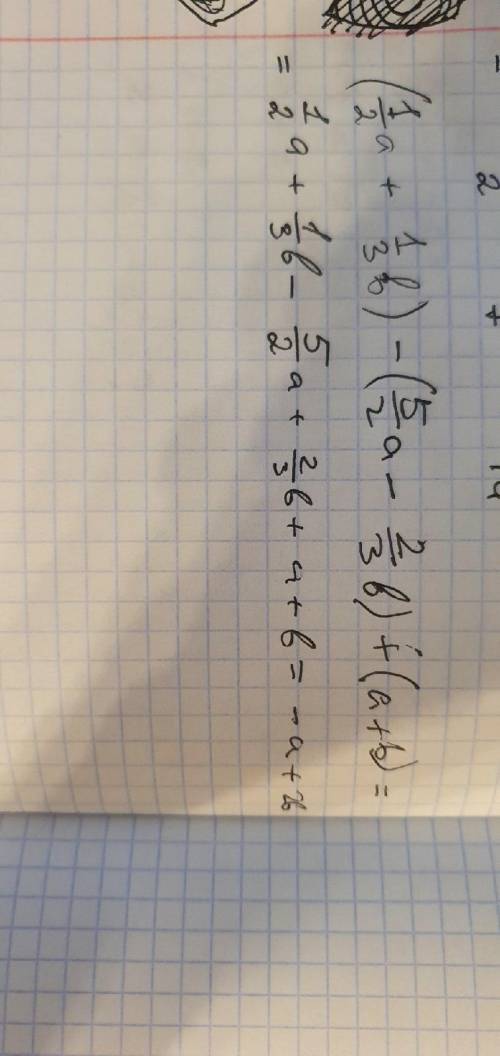 - 2 +
(1/2 a + 1/3 b) - (5/2 a - 2/3 b) + (a+b) =
= 1/2 a + 1/3 b - 5/2 a + 2/3 b + a + b = -a +